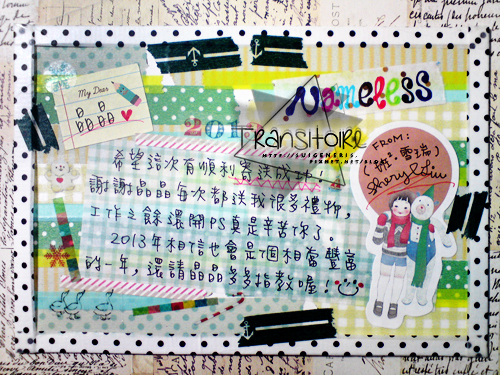 My Dear
晶晶
Nameless
Transitoire
希望這次有順利寄送成功！
謝謝晶晶每次都送我很多禮物，
工作之餘還開PS真是辛苦你了。
2013年相信也會是個相當豐富
的一年，還請晶晶多多指教喔！
FROM: